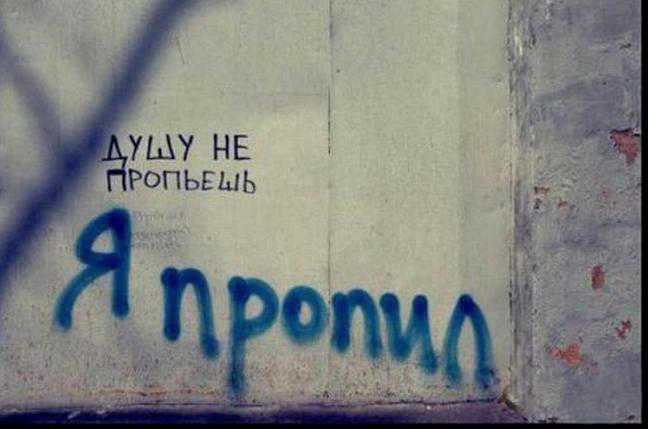 ДУШУ НЕ
ПРОПЬЕШЬ
Я пропил